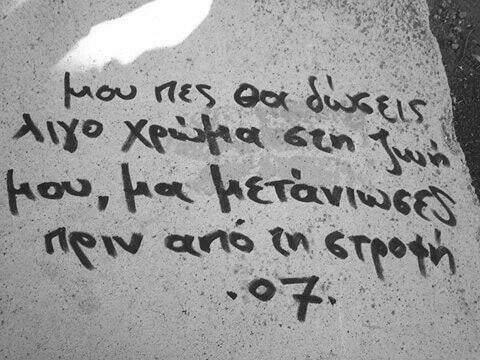 μου πες θα δώσεις
λιγο χρώμα στη ζωή
μου, μα μετάνιωσες
πριν από τη στροφή
.07.